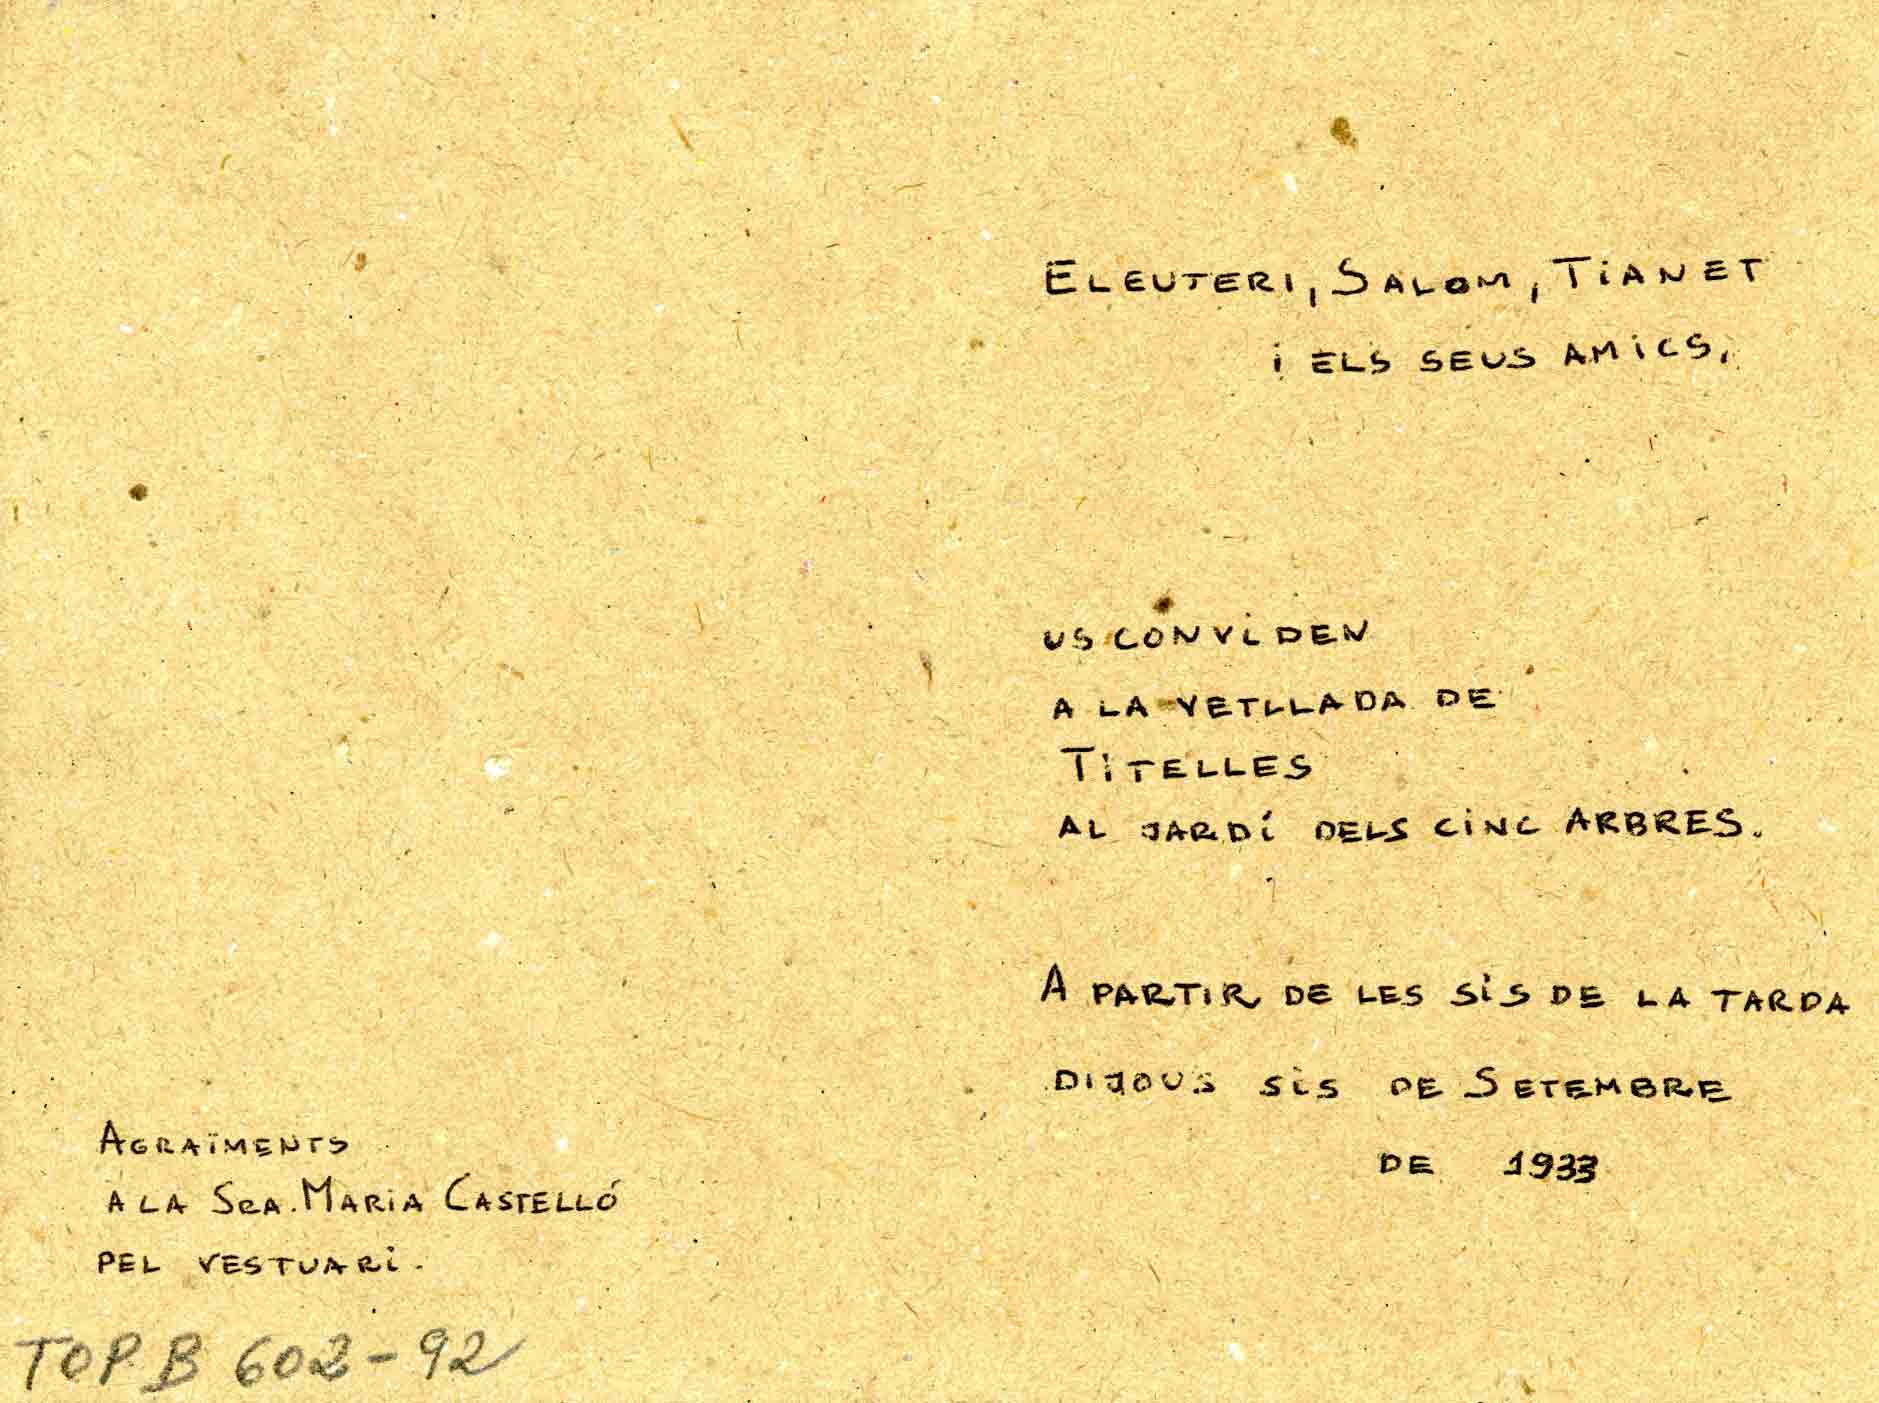 ELEUTERI, SALOM, TiANET
i ELS SEUS AMiCS,
US CONViDEN
A LA VETLLADA DE
TiTELLES
AL JARDÍ DELS CiNC ARBRES.
A PARTiR DE LES SiS DE LA TARDA
DIJOUS SiS DE SETEMBRE
DE 1933
AGRAÏMENTS
A LA SRA. MARiA CASTELLÓ
PEL VESTUARi.
TOP. B 602-92